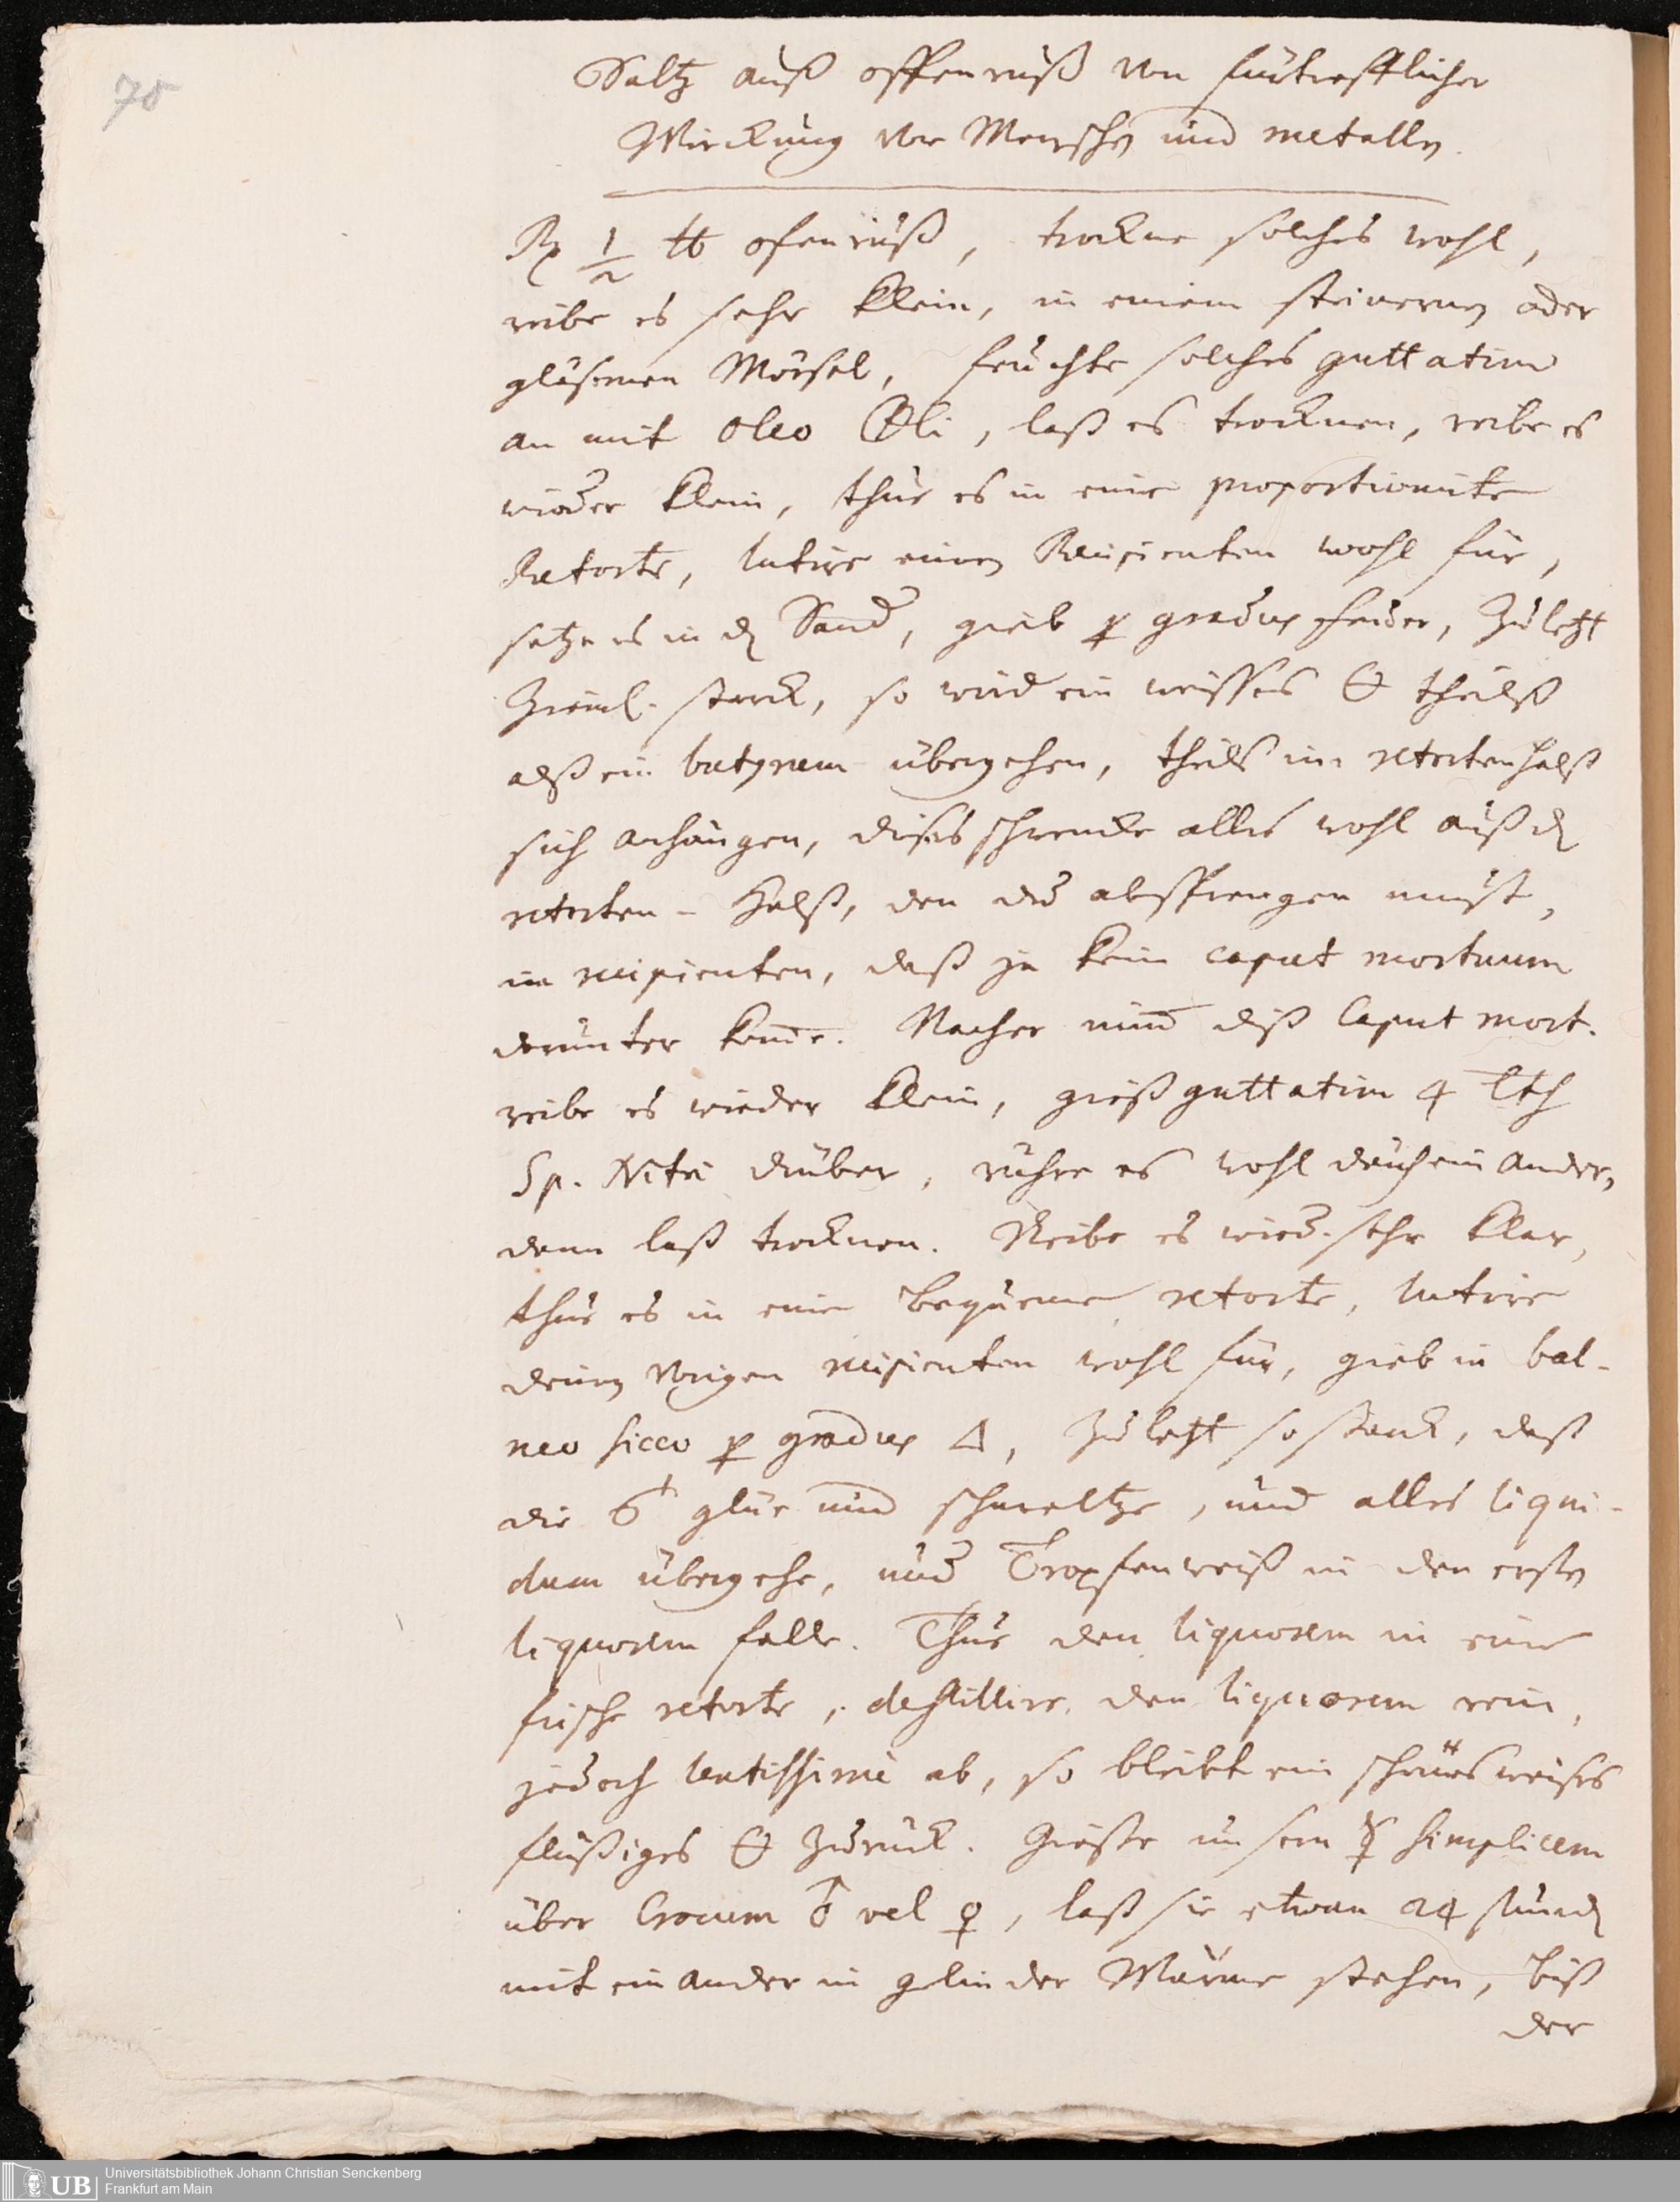 70
Saltz auß offenruß von fürtrefflicher
Wirckung vor Menschen und metallen.
Rp 1/2 ℔ ofenruß, trockne solches wohl,
reibe es sehr klein, in einem steinernen oder
gläsernen Mörsel, feuchte solches guttatim
an mit oleo 🜖li, laß es trocknen, reibe es
wieder klein, thue es in eine proportionirte
Retorte, lutire einen Recipienten wohl für,
setze es in den Sand, gieb p gradus feuer, zuletzt
Zieml. starck, so wird ein weisses 🜔 theilß
alß ein butyrum übergehen, theilß im retortenhalß
sich anhängen, dieses schwencke alles wohl auß dem
retorten-Halß, den du absprengen must,
im recipienten, daß ja kein caput mortuum
drunter komme. Nacher nimm diß Caput mort.
reibe es wieder klein, gieß guttatim 4 Lth
Sp. Nitri drüber, rühre es wohl durch einander,
dann laß trocknen. Reibe es wied. sehr klar,
thue es in eine bequeme retorte, lutire
deinen vorigen recipienten wohl für, gieb in bal-
neo sicco p gradus △, zuletzt so starck, daß
die glüe und schmeltze, und alles liqui-
dum übergehe, und Tropfenweiß in den ersten
liquorem falle. Thue den liquorem in eine
frische retorte, destillire den liquorem rein,
jedoch lentissimè ab, so bleibt ein schönes weises
flüßiges 🜔 zurück. Giesse unsern ☿ simplicem
über Crocum ♂ vel ♀, laß sie etwan 24 stund
mit einander in gelinder Wärme stehen, biß
der
UB
Universitätsbibliothek Johann Christian Senckenberg
Frankfurt am Main